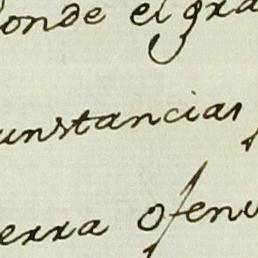 onde el gra
unstancias
erra ofen